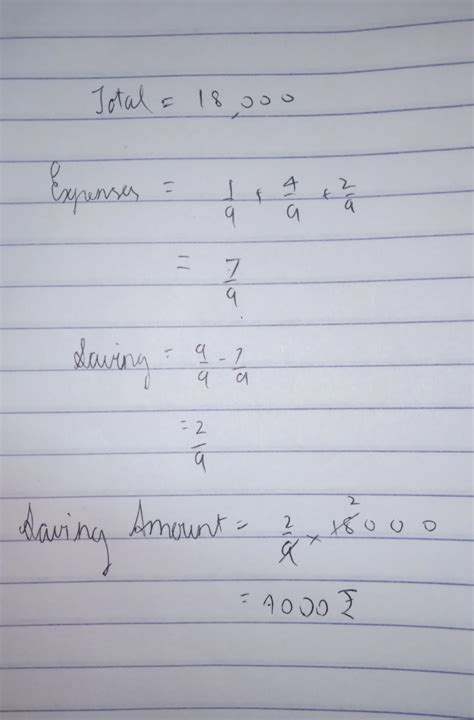 Total = 18,000
Expenses = 1/9 + 4/9 + 2/9
= 7/9
Saving = 9/9 - 7/9
= 2/9
Saving Amount = 2/9 × 18000 2
= 4000 ₹